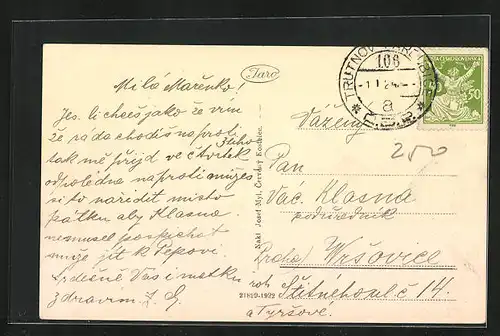 Faro
Milá Mařenko!
Jes-li chceš jako že vím
že ráda chodíš naproti
3tího
tak mě přijď ve čtvrtek
odpoledne naproti můžeš
si to nařídit místo
pátku aby Klasna
nemusel pospíchat
může jít k Pepovi
Srdečně Vás i matku
zdravím
Nakl. Josef Myl, Červený Kostelec.
21819-1922
TRUTNOV
108
-1 I 24
a
ČESKOSLOVENSKA
50
250
Vážený
Pan
Vác. Klasna
Praha Vršovice
Štítného ul č 14.
a Tyršové.